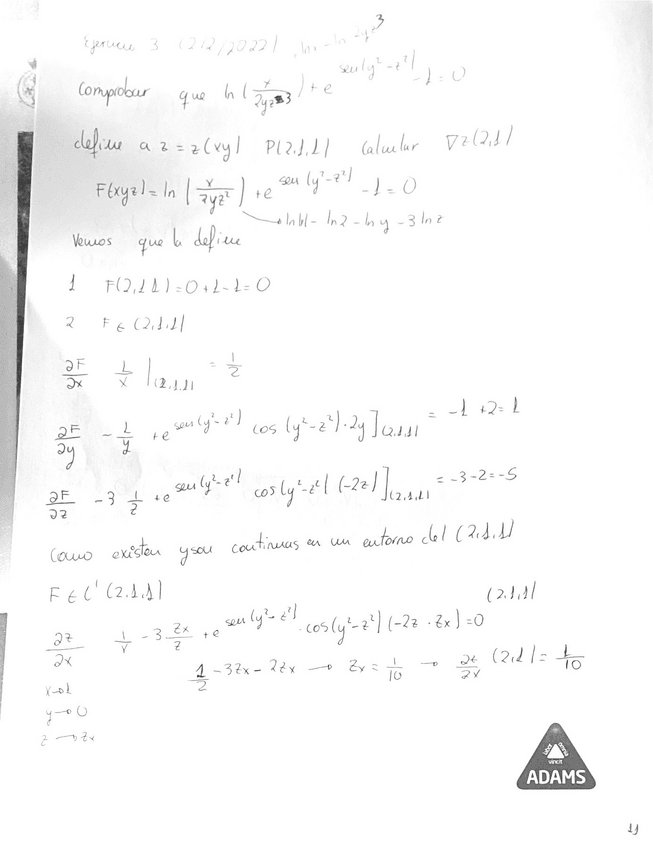 Ejercicio 3 (2/2/2022) lnx - ln 2yz³
Comprobar que ln(x/2yz3) + e^sen(y²-z²) - 1 = 0
define a z = z(xy) P(2,1,1) Calcular ∇z(2,1)
F(xyz) = ln(x/2yz²) + e^sen(y²-z²) - 1 = 0
→ ln|x| - ln2 - lny - 3lnz
Vemos que la define
1 F(2,1,1) = 0 + 1 - 1 = 0
2 F ∈ (2,1,1)
∂F/∂x 1/x |(2,1,1) = 1/2
∂F/∂y -1/y + e^sen(y²-z²) cos(y²-z²)·2y](2,1,1) = -1 + 2 = 1
∂F/∂z -3 1/z + e^sen(y²-z²) cos(y²-z²)(-2z)](2,1,1) = -3 - 2 = -5
Como existen y son continuas en un entorno del (2,1,1)
F ∈ C' (2,1,1) (2,1,1)
∂z/∂x 1/x - 3 Zx/z + e^sen(y²-z²) · cos(y²-z²)(-2z · Zx) = 0
1/2 - 3Zx - 2Zx → Zx = 1/10 → ∂z/∂x (2,1) = 1/10
x → 1
y → 0
z → Zx
labor omnia vincit
ADAMS
11